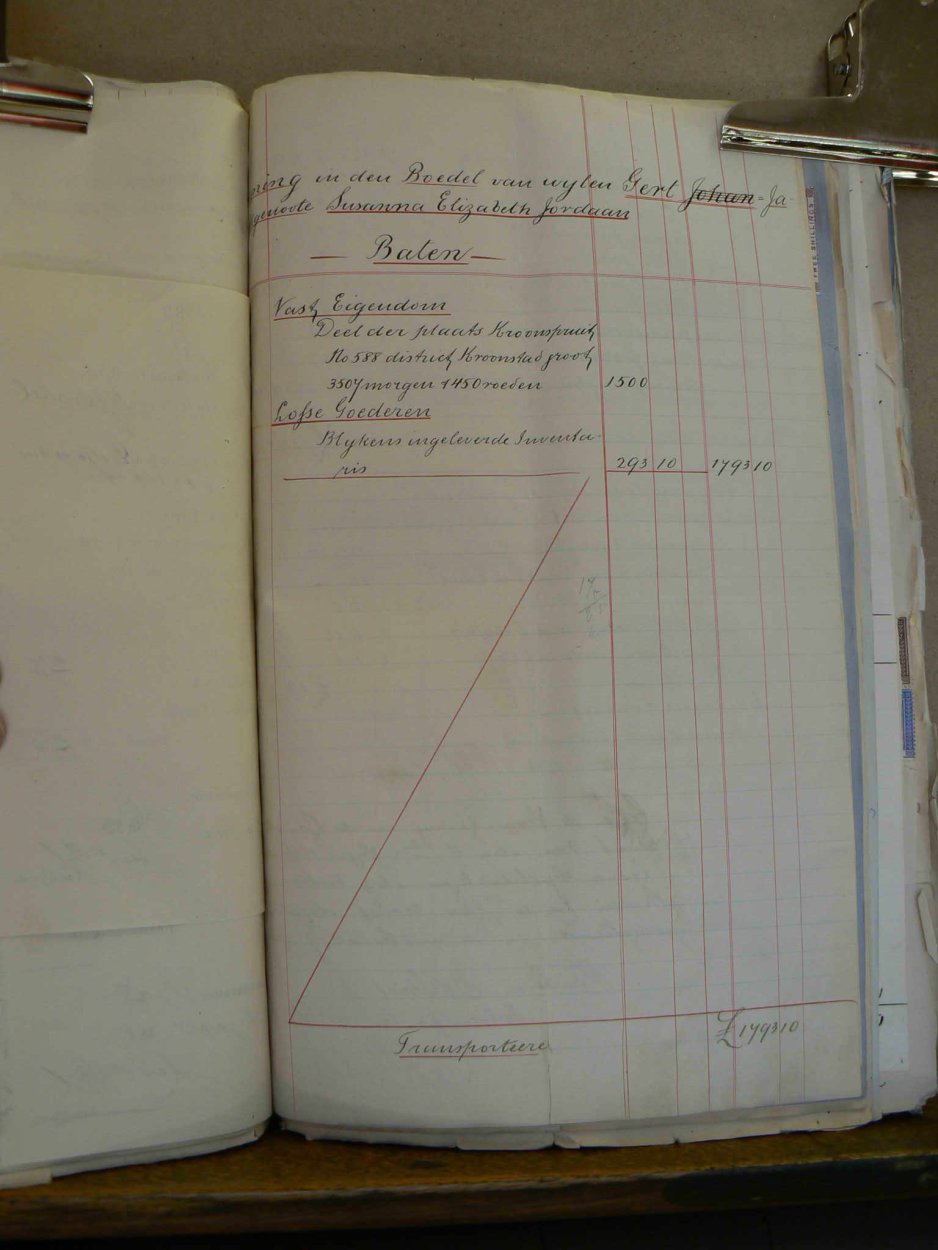 ning in den Boedel van wylen Gert Johan = Ja-
genoote Susanna Elizabeth Jordaan
— Baten —
Vast Eigendom
Deel der plaats Kroonspruit
No 588 district Kroonstad groot
3507 morgen 1450 roeden 1500
Losse Goederen
Blykens ingeleverde Inventa-
ris 293 10 1793 10
Transporteere £1793 10